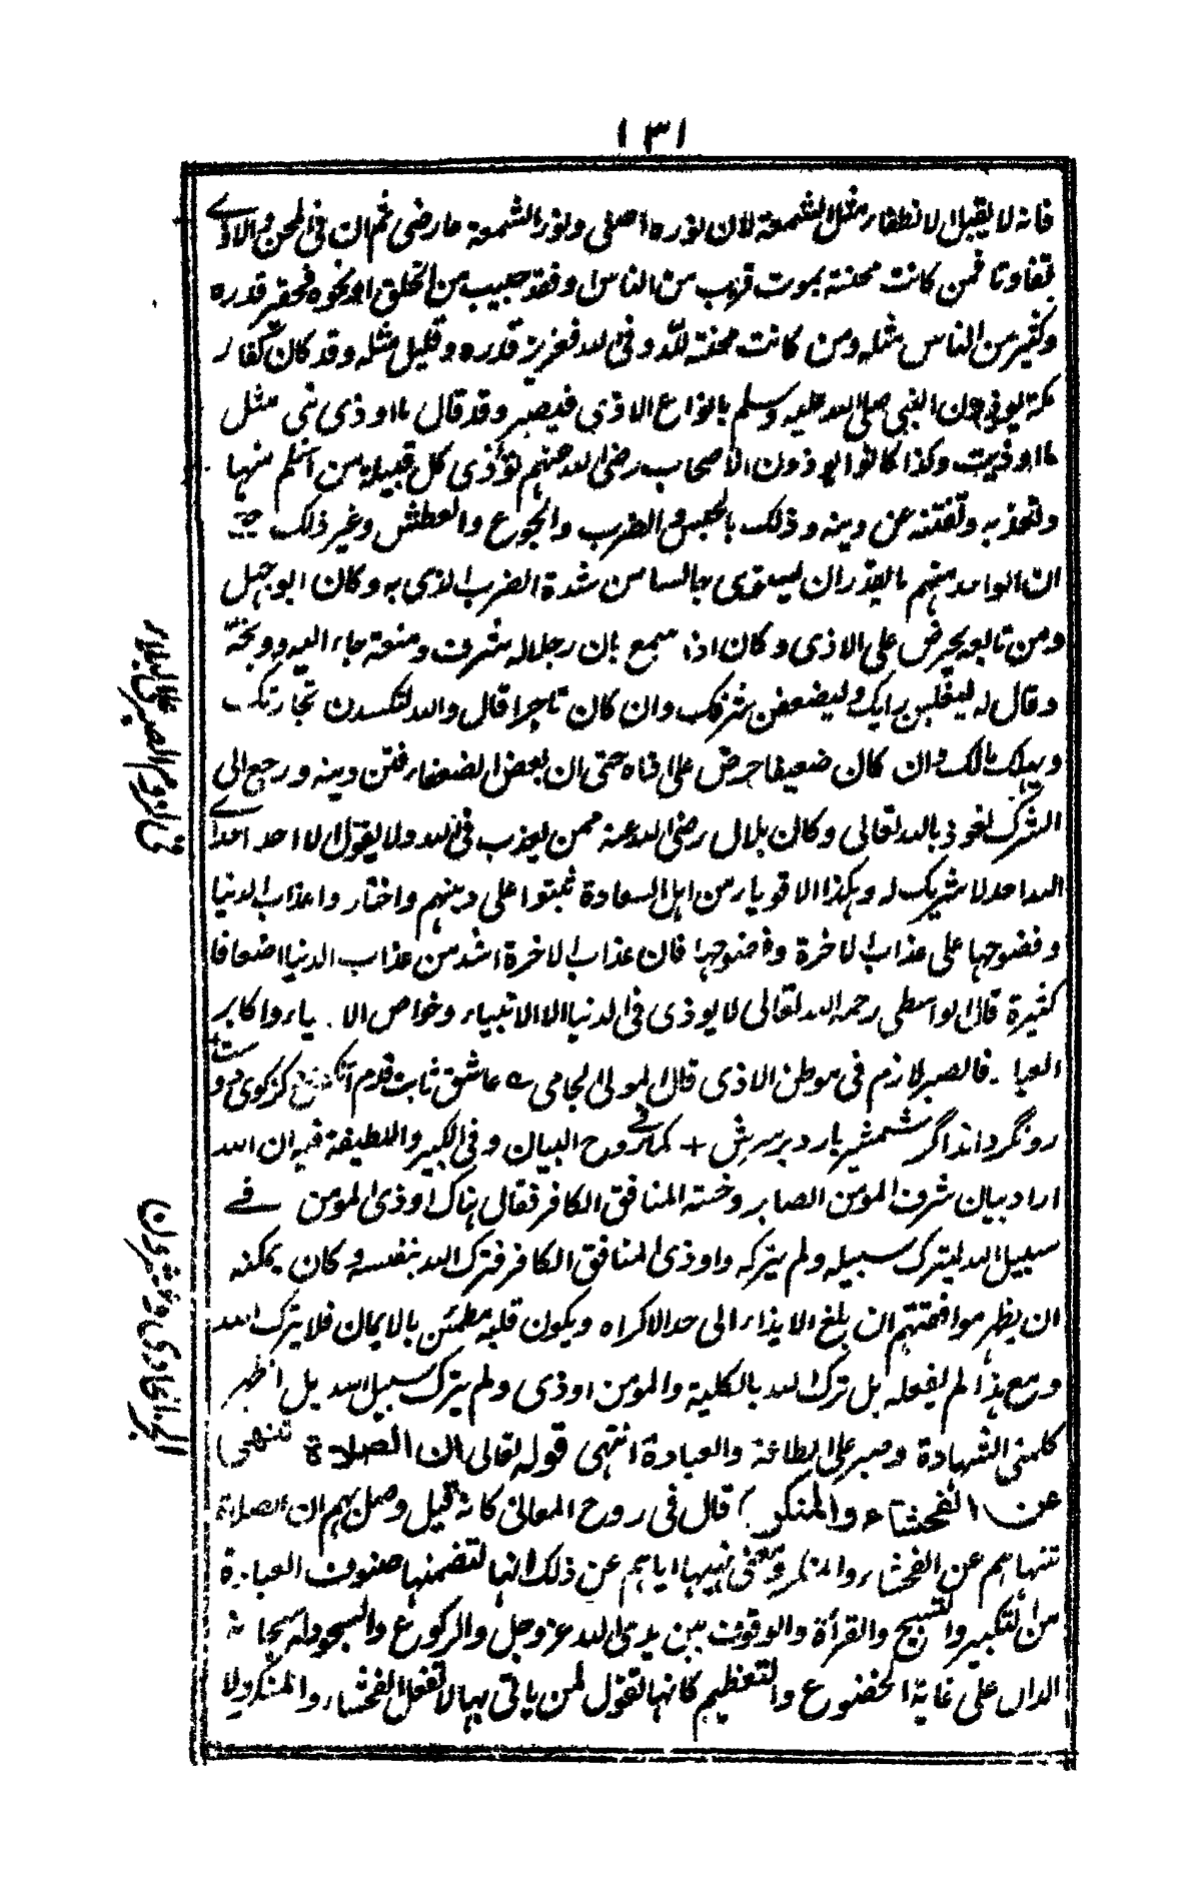 ١٣١
فانه لا يقبل الانطفاء مثل الشمعة لان نوره اصلى ونور الشمعة عارضى ثم ان فى المحن والاذى
تفاوتا فمن كانت محنته بموت قريب من الناس او فقد حبيب من الخلق او نحوه فحقير قدره
وكثير من الناس مثله ومن كانت محنته لله وفى الله فعزيز قدره وقليل مثله وقد كان كفار
مكة يوذون النبى صلى الله عليه وسلم بانواع الاذى فيصبر وقد قال ما اوذى نبى مثل
ما اوذيت وكذا كانوا يوذون الاصحاب رضى الله عنهم تؤذى كل قبيلة من اسلم منها
وتعذبه وتفتنه عن دينه وذلك بالحبس والضرب والجوع والعطش وغير ذلك حتى
ان الواحد منهم ما يقدر ان يستوى جالسا من شدة الضرب الذى به وكان ابو جهل
ومن تابعه يحرض على الاذى وكان اذا سمع بان رجلا له شرف ومنعة جاء اليه ووبخه
وقال له ليغلبن رايك وليضعفن شرفك وان كان تاجرا قال والله لتكسدن تجارتك
ويهلك مالك وان كان ضعيفا حرض على اذاه حتى ان بعض الضعفاء فتن دينه ورجع الى
الشرك نعوذ بالله تعالى وكان بلال رضى الله عنه ممن يعذب فى الله ولا يقول الا احد احد اى
الله احد لا شريك له وهكذا الاقوياء من اهل السعادة ثبتوا على دينهم واختاروا عذاب الدنيا
وفضوحها على عذاب الاخرة وفضوحها فان عذاب الاخرة اشد من عذاب الدنيا اضعافا
كثيرة قال الواسطى رحمه الله تعالى لا يوذى فى الدنيا الا الانبياء وخواص الا ياء واكابر
العبا فالصبر لازم فى موطن الاذى قال المولى الجامى ؎ عاشق ثابت قدم آنكس كز كوى دوست
رو نگرداند اگر شمشير بارد بر سرش + كما فى روح البيان وفى الكبير واللطيفة فيه ان الله
اراد بيان شرف المؤمن الصابر وخسة المنافق الكافر فقال هناك اوذى المؤمن فى
سبيل الله ليترك سبيله ولم يتركه واوذى المنافق الكافر فترك الله بنفسه وكان يمكنه
ان يظهر موافقتهم ان بلغ الايذاء الى حد الاكراه ويكون قلبه مطمئن بالايمان فلا يترك الله
ومع هذا لم يفعله بل ترك الله بالكلية والمومن اوذى ولم يترك سبيل الله بل اظهر
كلمتى الشهادة وصبر على الطاعة والعبادة انتهى قوله تعالى ان الصلاة تنهى
عن الفحشاء والمنكر) قال فى روح المعانى كانه قيل وصل بهم ان الصلاة
تنهاهم عن الفحشاء والمنكر ومعنى نهيها اياهم عن ذلك انها لتضمنها صنوف العبادة
من التكبير والتسبيح والقراءة والوقوف بين يدى الله عز وجل والركوع والسجود له سبحانه
الدال على غاية الخضوع والتعظيم كانها تقول لمن ياتى بها لا تفعل الفحشاء والمنكر ولا